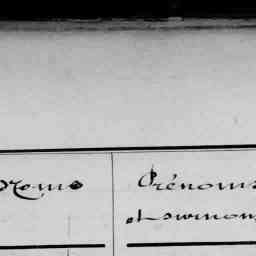 Noms
Prénoms
et Surnoms